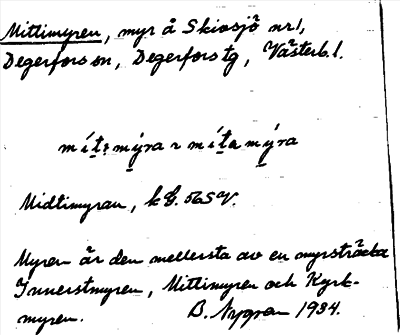 Mittimyren, myr å Skivsjö nr 1,
Degerfors sn, Degerfors tg, Västerb. l.
Midtimyran, k 56SV.
Myren är den mellersta av en myrsträcka
Innerstmyren, Mittimyren och Kyrk-
myren. B. Nygren 1934.